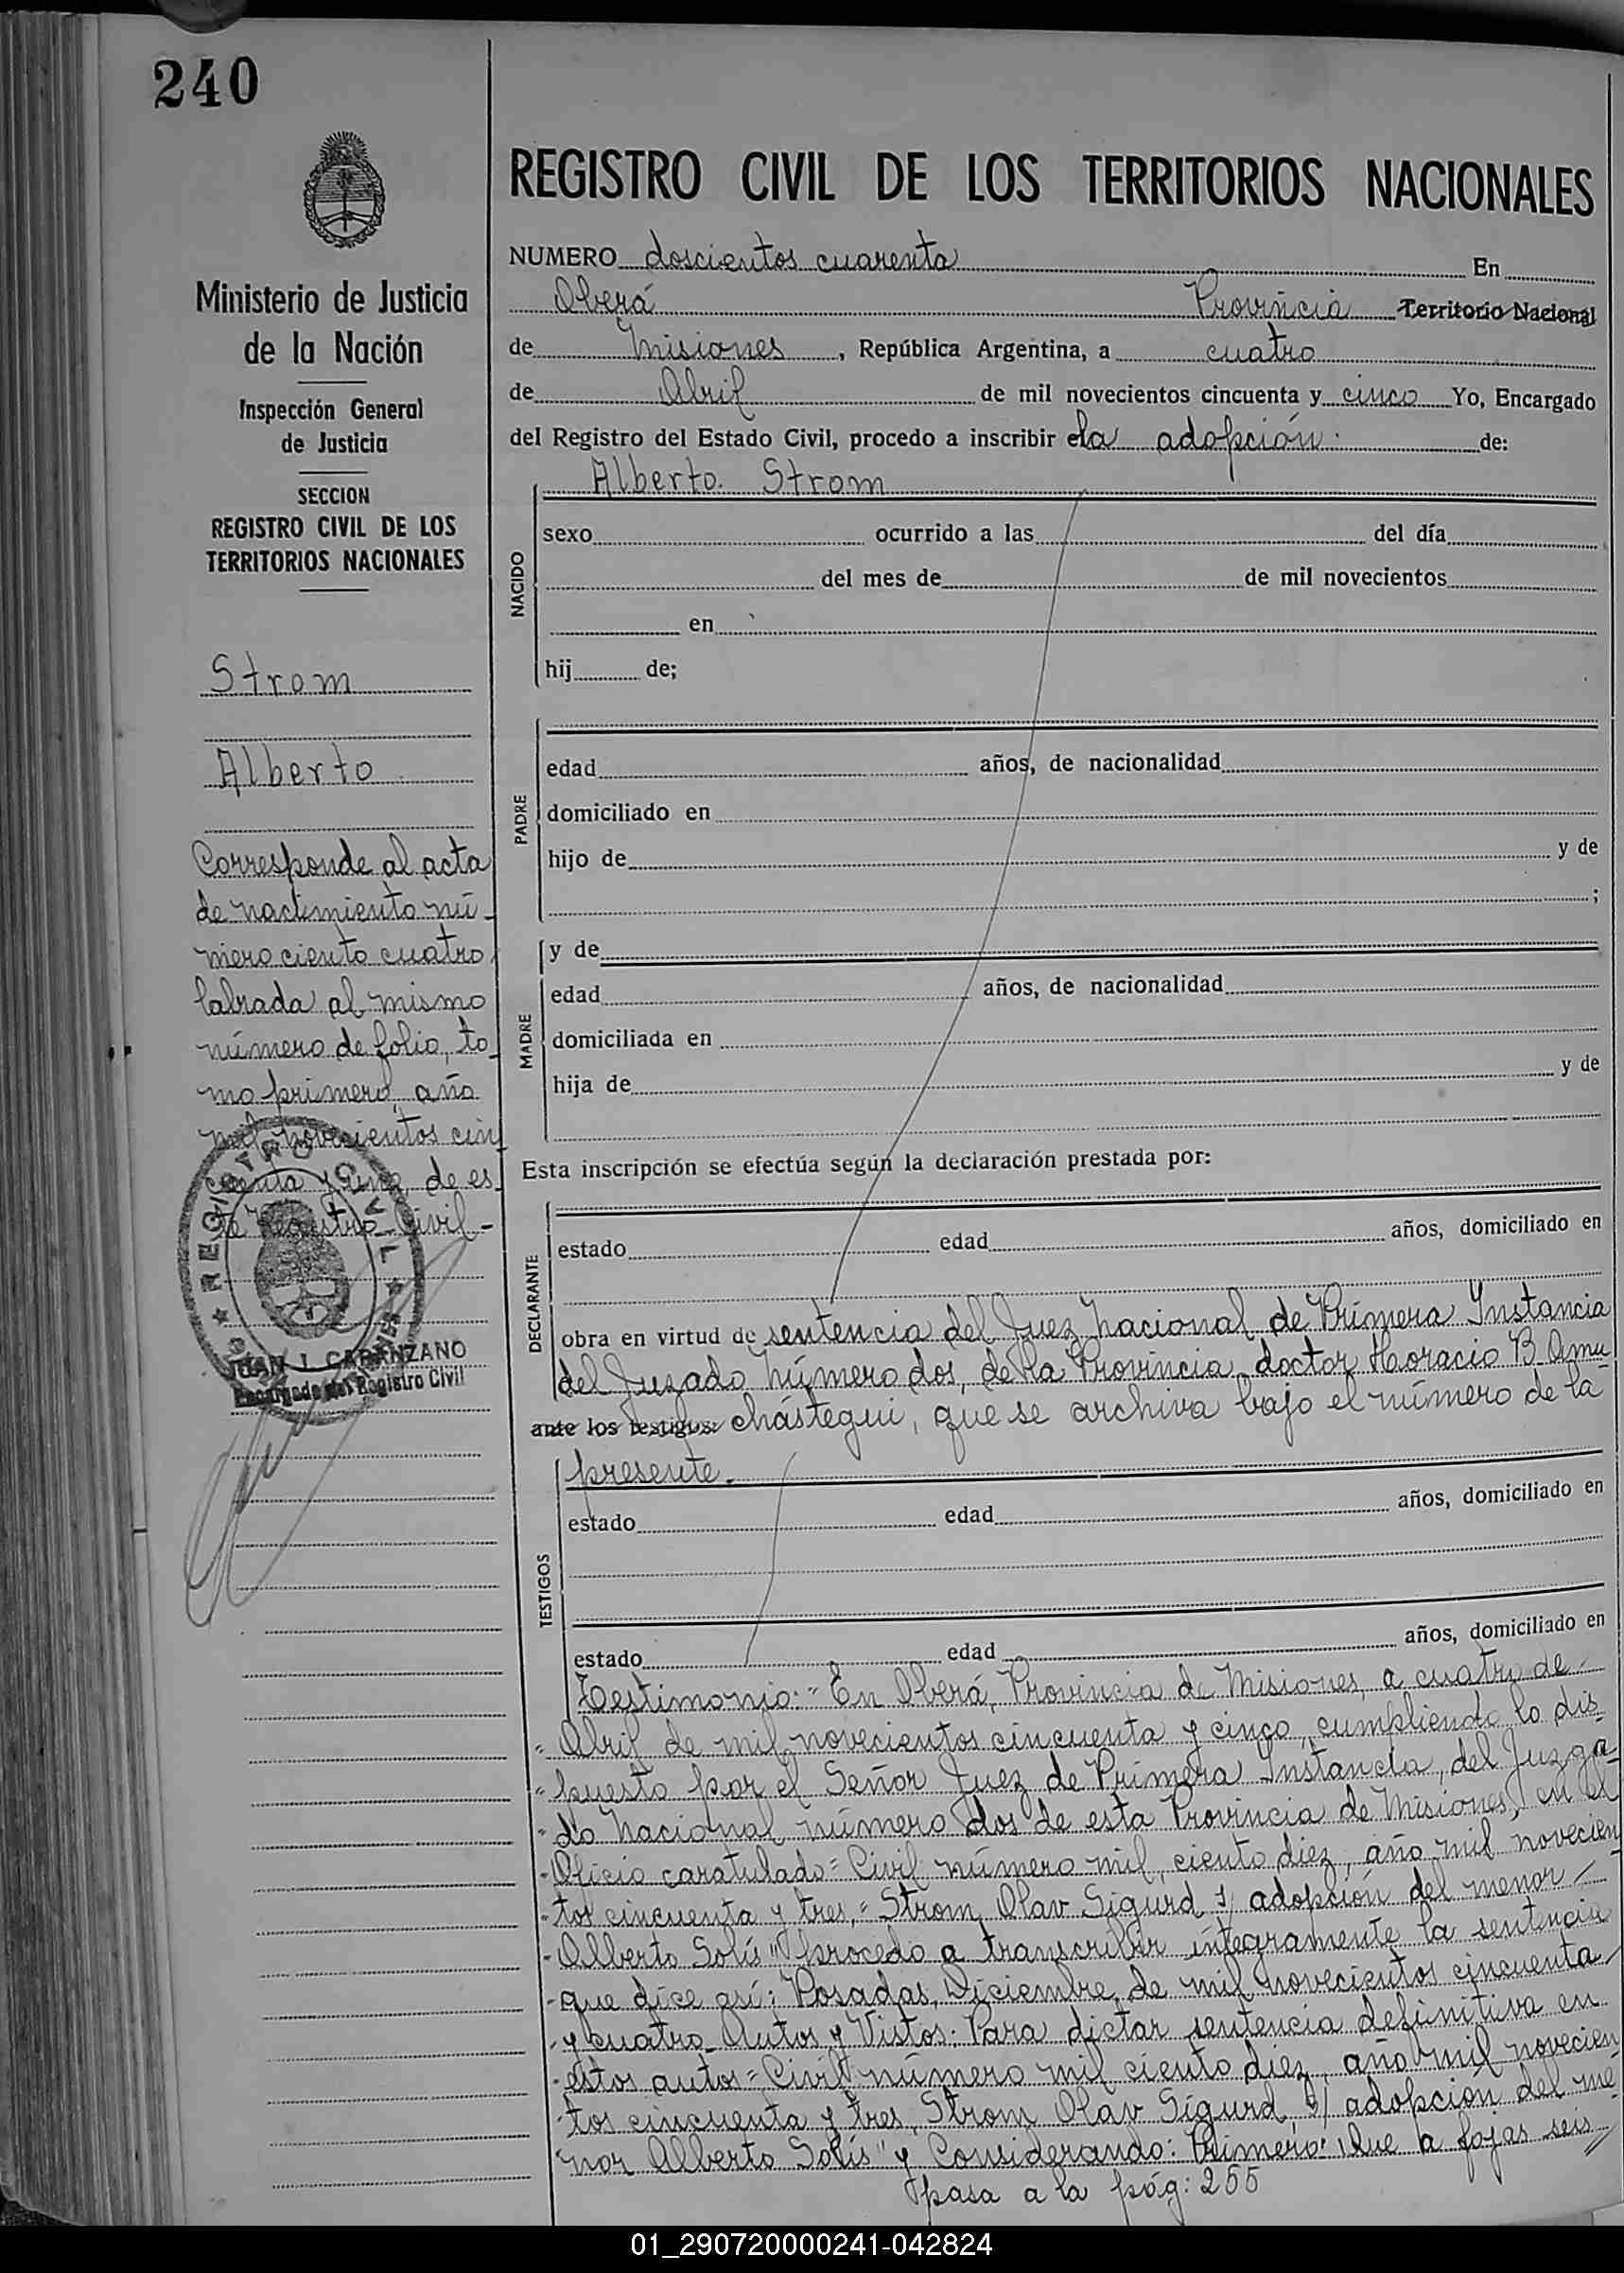 240
Ministerio de Justicia
de la Nación
Inspección General
de Justicia
SECCION
REGISTRO CIVIL DE LOS
TERRITORIOS NACIONALES
Strom
Alberto
Corresponde al acta
de nacimiento nú-
mero ciento cuatro
labrada al mismo
número de folio, to-
mo primero, año
mil novecientos cin
cuenta y uno, de es-
te Registro Civil-
REGISTRO CIVIL
JUAN I. CARANZANO
Encargado del Registro Civil
REGISTRO CIVIL DE LOS TERRITORIOS NACIONALES
NUMERO doscientos cuarenta En
Oberá Provincia Territorio Nacional
de Misiones, República Argentina, a cuatro
de Abril de mil novecientos cincuenta y cinco Yo, Encargado
del Registro del Estado Civil, procedo a inscribir la adopción de:
Alberto Strom
NACIDO
sexo ocurrido a las del día
del mes de de mil novecientos
en
hij de;
PADRE
edad años, de nacionalidad
domiciliado en
hijo de y de
;
MADRE
y de
edad años, de nacionalidad
domiciliada en
hija de y de
Esta inscripción se efectúa según la declaración prestada por:
DECLARANTE
estado edad años, domiciliado en
obra en virtud de sentencia del Juez Nacional de Primera Instancia
del Juzado Número dos, de la Provincia, doctor Horacio B. Amu-
ante los testigos: chástegui, que se archiva bajo el número de la
presente.
TESTIGOS
estado edad años, domiciliado en
estado edad años, domiciliado en
Testimonio: "En Oberá, Provincia de Misiones, a cuatro de
" Abril de mil novecientos cincuenta y cinco, cumpliendo lo dis-
" puesto por el Señor Juez de Primera Instancia, del Juzga-
" do Nacional número dos de esta Provincia de Misiones, en el
" Oficio caratulado= Civil número mil, ciento diez, año mil novecien
" tos cincuenta y tres,= Strom Olav Sigurd s/ adopción del menor
" Alberto Solís" procedo a transcribir íntegramente la sentencia
" que dice así: Posadas, Diciembre de mil novecientos cincuenta
" y cuatro. Autos y Vistos: Para dictar sentencia definitiva en
" estos autos= Civil número mil ciento diez, año mil novecien
" tos cincuenta y tres, Strom Olav Sigurd s/ adopción del me-
" nor Alberto Solís" y Considerando: Primero: Que a fojas seis
pasa a la pág: 255
01_290720000241-042824